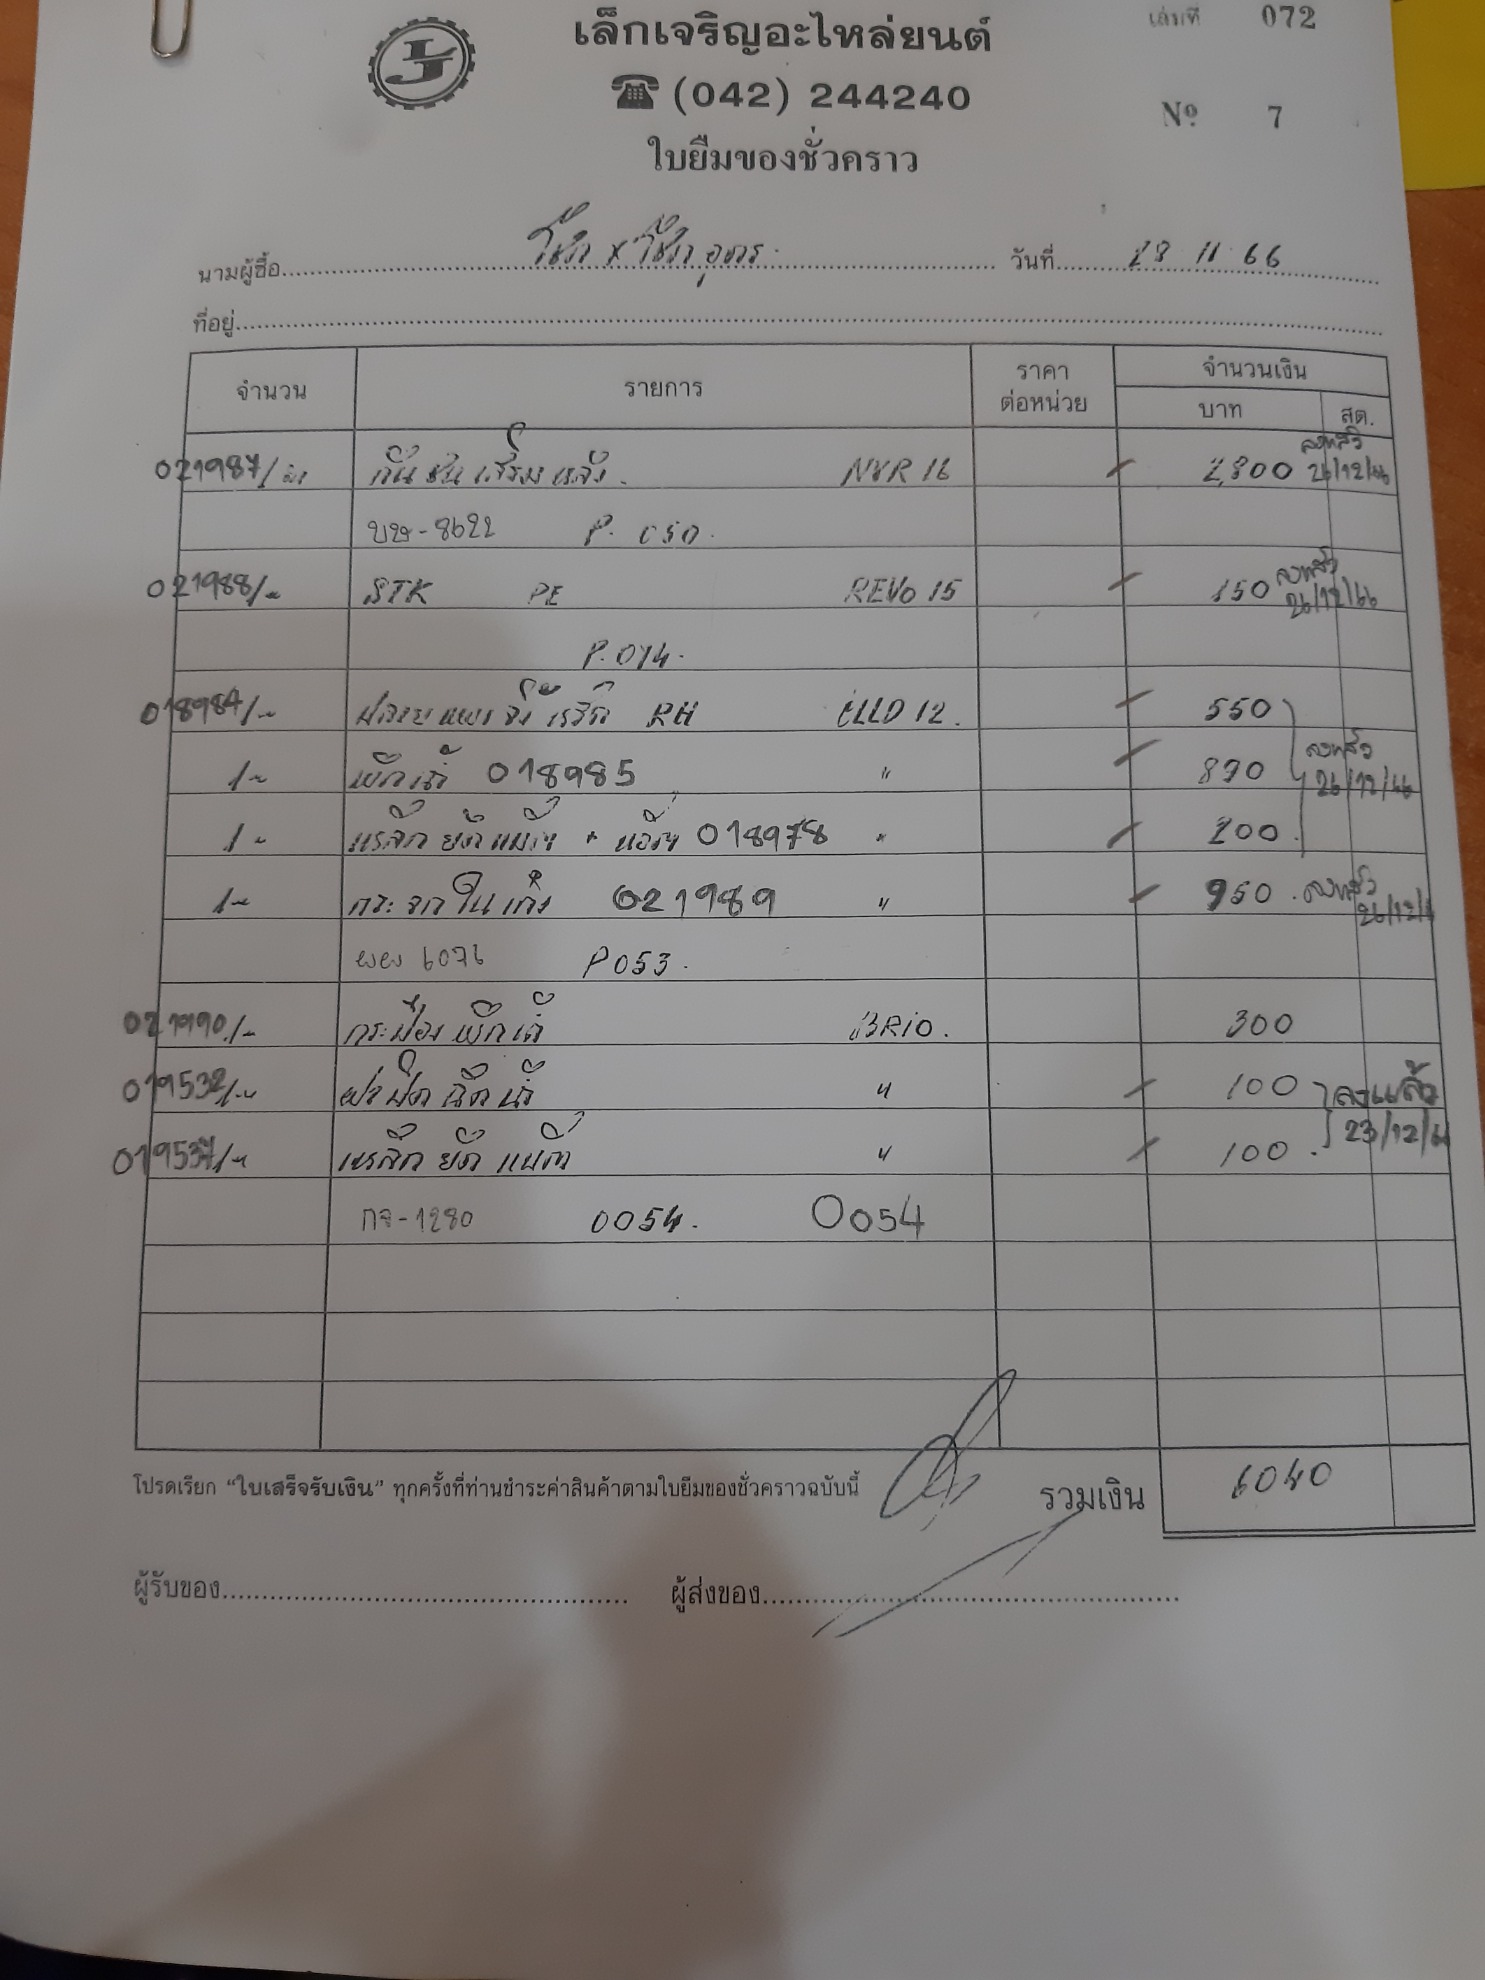 เล็กเจริญอะไหล่ยนต์
เล่มที่ 072
(042) 244240
№ 7
ใบยืมของชั่วคราว
นามผู้ซื้อ โชค x โชค อุดร วันที่ 28 11 66
ที่อยู่
จำนวน รายการ ราคาต่อหน่วย จำนวนเงิน
บาท สต.
021987/ กันชนเสริมหลัง NVR 16 2,800 ลงแล้ว 26/12/66
บษ-8622 P. 050.
021988/ STK PE REVO 15 150 ลงแล้ว 26/12/66
P.014.
018984/ RH 12. 550
1 018985 " 890 ลงแล้ว 26/12/66
1 018978 " 200
1 กระจกในเก๋ง 021989 " 950 ลงแล้ว 26/12/
6076 P053.
021990/ กระป๋องพักน้ำ BRIO. 300
019532/ ฝาปิดฉีดน้ำ " 100 ลงแล้ว
23/12/66
" 100
กจ-1280 0054. 0054
โปรดเรียก "ใบเสร็จรับเงิน" ทุกครั้งที่ท่านชำระค่าสินค้าตามใบยืมของชั่วคราวฉบับนี้ รวมเงิน 6040
ผู้รับของ ผู้ส่งของ